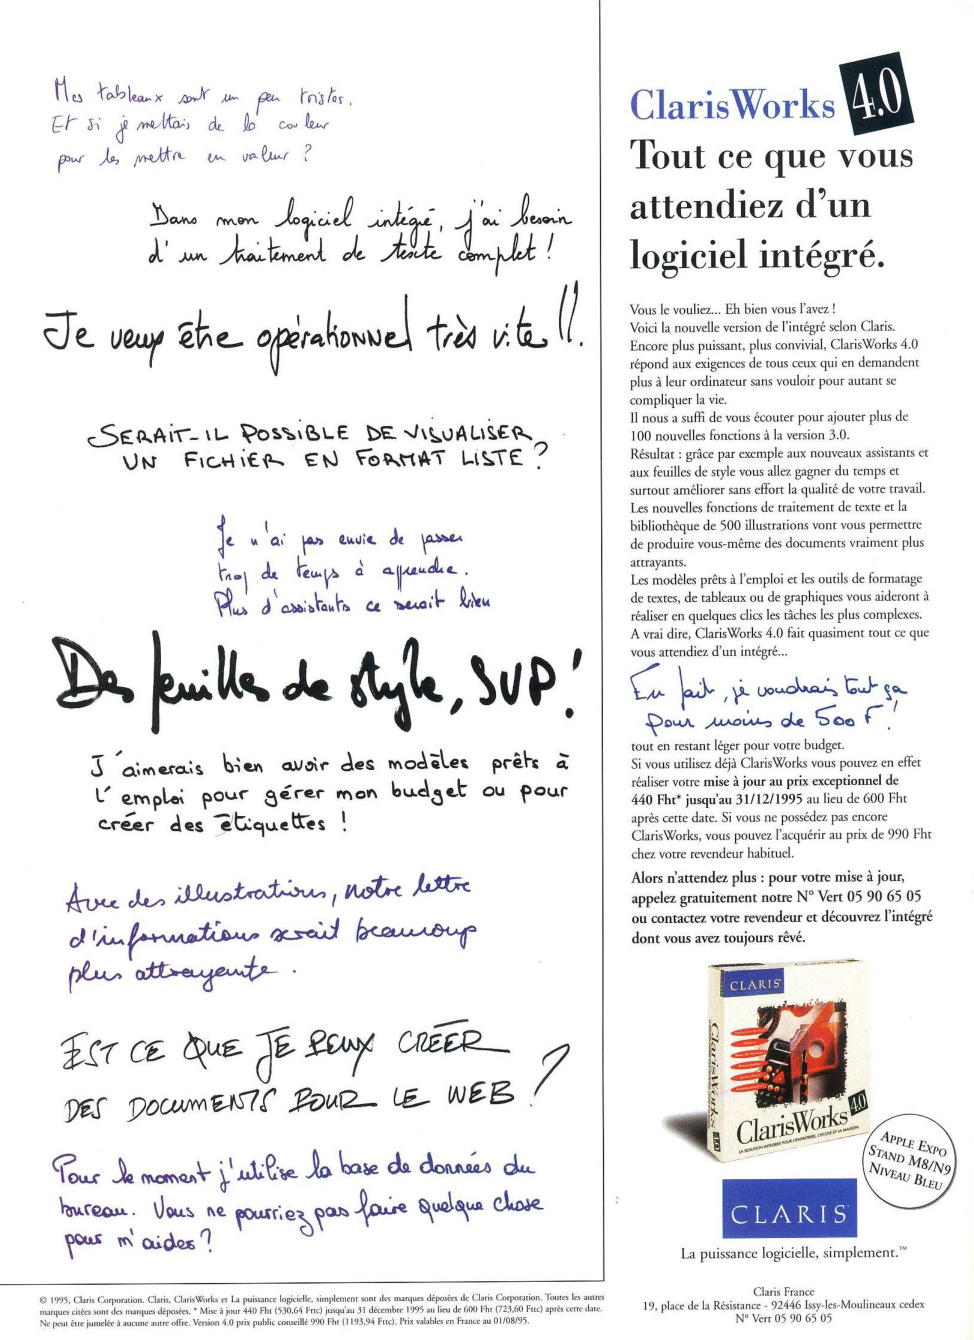 Mes tableaux sont un peu tristes.
Et si je mettais de la couleur
pour les mettre en valeur ?
Dans mon logiciel intégré, j'ai besoin
d'un traitement de texte complet !
Je veux être opérationnel très vite !!.
SERAIT-IL POSSIBLE DE VISUALISER
UN FICHIER EN FORMAT LISTE ?
Je n'ai pas envie de passer
trop de temps à apprendre.
Plus d'assistants ce serait bien
Des feuilles de style, SVP !
J'aimerais bien avoir des modèles prêts à
l'emploi pour gérer mon budget ou pour
créer des étiquettes !
Avec des illustrations, notre lettre
d'informations serait beaucoup
plus attrayante.
EST CE QUE JE PEUX CRÉER
DES DOCUMENTS POUR LE WEB ?
Pour le moment j'utilise la base de données du
bureau. Vous ne pourriez pas faire quelque chose
pour m'aider ?
© 1995, Claris Corporation. Claris, ClarisWorks et La puissance logicielle, simplement sont des marques déposées de Claris Corporation. Toutes les autres
marques citées sont des marques déposées. * Mise à jour 440 Fht (530,64 Fttc) jusqu'au 31 décembre 1995 au lieu de 600 Fht (723,60 Fttc) après cette date.
Ne peut être jumelée à aucune autre offre. Version 4.0 prix public conseillé 990 Fht (1193,94 Fttc). Prix valables en France au 01/08/95.
ClarisWorks 4.0
Tout ce que vous
attendiez d'un
logiciel intégré.
Vous le vouliez... Eh bien vous l'avez !
Voici la nouvelle version de l'intégré selon Claris.
Encore plus puissant, plus convivial, ClarisWorks 4.0
répond aux exigences de tous ceux qui en demandent
plus à leur ordinateur sans vouloir pour autant se
compliquer la vie.
Il nous a suffi de vous écouter pour ajouter plus de
100 nouvelles fonctions à la version 3.0.
Résultat : grâce par exemple aux nouveaux assistants et
aux feuilles de style vous allez gagner du temps et
surtout améliorer sans effort la qualité de votre travail.
Les nouvelles fonctions de traitement de texte et la
bibliothèque de 500 illustrations vont vous permettre
de produire vous-même des documents vraiment plus
attrayants.
Les modèles prêts à l'emploi et les outils de formatage
de textes, de tableaux ou de graphiques vous aideront à
réaliser en quelques clics les tâches les plus complexes.
A vrai dire, ClarisWorks 4.0 fait quasiment tout ce que
vous attendiez d'un intégré...
En fait, je voudrais tout ça
pour moins de 500 F !
tout en restant léger pour votre budget.
Si vous utilisez déjà ClarisWorks vous pouvez en effet
réaliser votre mise à jour au prix exceptionnel de
440 Fht* jusqu'au 31/12/1995 au lieu de 600 Fht
après cette date. Si vous ne possédez pas encore
ClarisWorks, vous pouvez l'acquérir au prix de 990 Fht
chez votre revendeur habituel.
Alors n'attendez plus : pour votre mise à jour,
appelez gratuitement notre N° Vert 05 90 65 05
ou contactez votre revendeur et découvrez l'intégré
dont vous avez toujours rêvé.
CLARIS
ClarisWorks 4.0
ClarisWorks 4.0
LA SOLUTION INTÉGRÉE POUR L'ENTREPRISE, L'ÉCOLE ET LA MAISON
APPLE EXPO
STAND M8/N9
NIVEAU BLEU
CLARIS
La puissance logicielle, simplement.™
Claris France
19, place de la Résistance - 92446 Issy-les-Moulineaux cedex
N° Vert 05 90 65 05